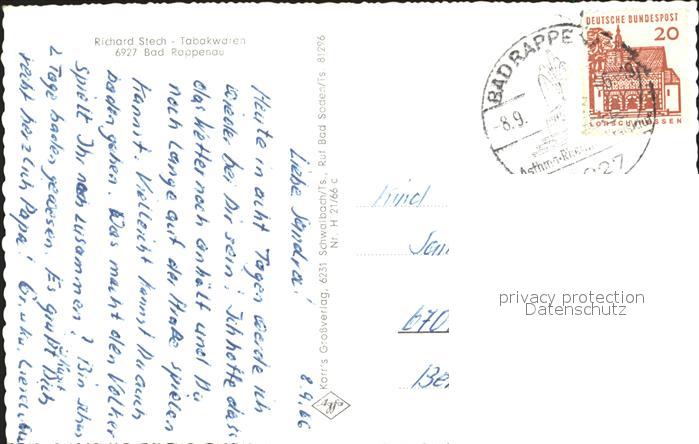 Richard Stech - Tabakwaren
6927 Bad Rappenau
8.9.66
Liebe Sandra!
Heute in acht Tagen werde ich
wieder bei Dir sein! Ich hoffe dass
das Wetter noch anhält und Du
noch lange auf der Straße spielen
kannst. Vielleicht kannst Du auch
baden gehen. Was macht denn Volker
spielt Ihr noch zusammen? Bin schon
2 Tage baden gewesen. Es grüßt Dich
recht herzlich Papa!
Korr's Großverlag, 6231 Schwalbach/Ts., Ruf Bad Soden/Ts. 81296
Nr. H 21/66 c
DEUTSCHE BUNDESPOST
20
LORSCH HESSEN
BAD RAPPE
-8.9.
Kind
San
670
Be
privacy protection
Datenschutz